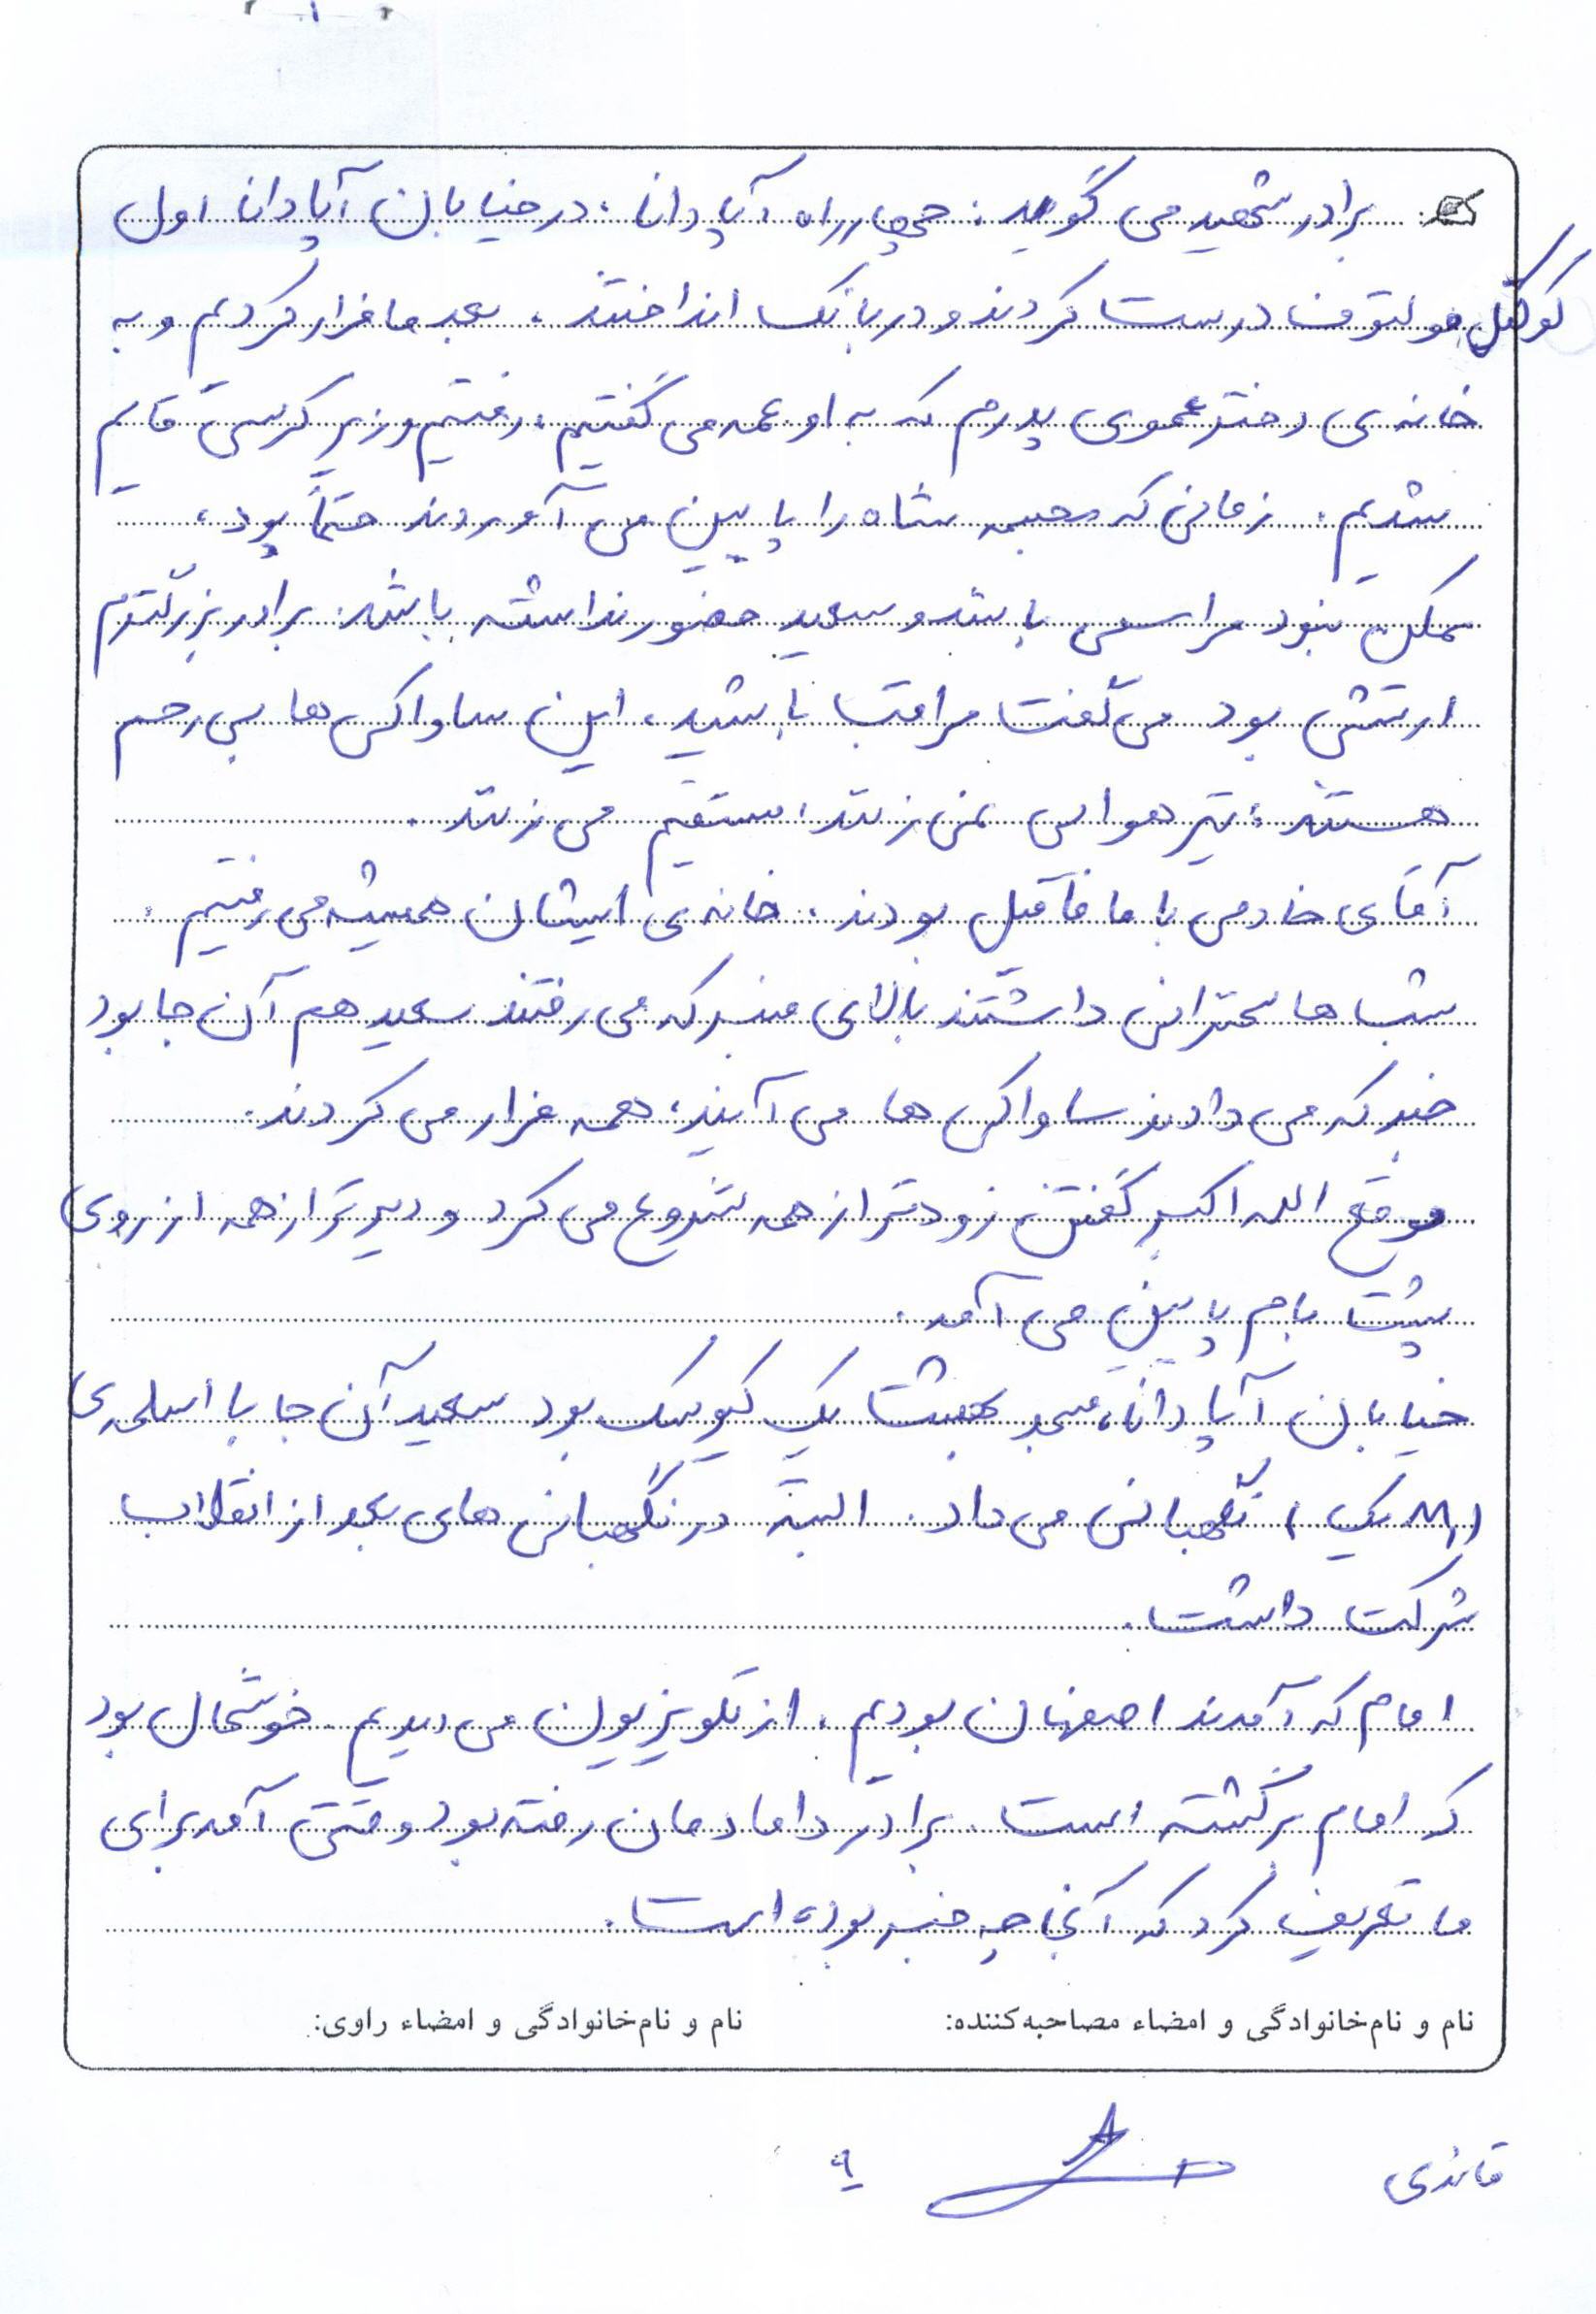 برادر شهید می گوید: چهارراه آپادانا، در خیابان آپادانا اول
کوکتل مولتوف درست کردند و در بانک انداختند. بعد ما فرار کردیم و به
خانه ی دختر عموی پدرم که به او عمه می گفتیم، رفتیم و زیر کرسی قایم
شدیم. زمانی که مجسمه شاه را پایین می آوردند حتماً بود،
ممکن نبود مراسمی باشد و سعید حضور نداشته باشد. برادر بزرگترم
ارتشی بود می گفت مراقب باشید، این ساواکی ها بی رحم
هستند؛ تیر هوایی نمی زنند، مستقیم می زنند.
آقای خادمی با ما فامیل بودند. خانه ی ایشان همیشه می رفتیم.
شب ها سخنرانی داشتند بالای منبر که می رفتند سعید هم آن جا بود
خبر که می دادند ساواکی ها می آیند؛ همه فرار می کردند.
موقع الله اکبر گفتن زودتر از همه شروع می کرد و دیرتر از همه از روی
پشت بام پایین می آمد.
خیابان آپادانا، مسجد بهشت یک کیوسک بود سعید آن جا با اسلحه ی
(M1 یک) نگهبانی می داد. البته در نگهبانی های بعد از انقلاب
شرکت داشت.
امام که آمدند اصفهان بودیم. از تلویزیون می دیدیم. خوشحال بود
که امام برگشته است. برادر دامادمان رفته بود وقتی آمد برای
ما تعریف کرد که آنجا چه خبر بوده است.
نام و نام‌خانوادگی و امضاء مصاحبه‌کننده: نام و نام‌خانوادگی و امضاء راوی:
۹